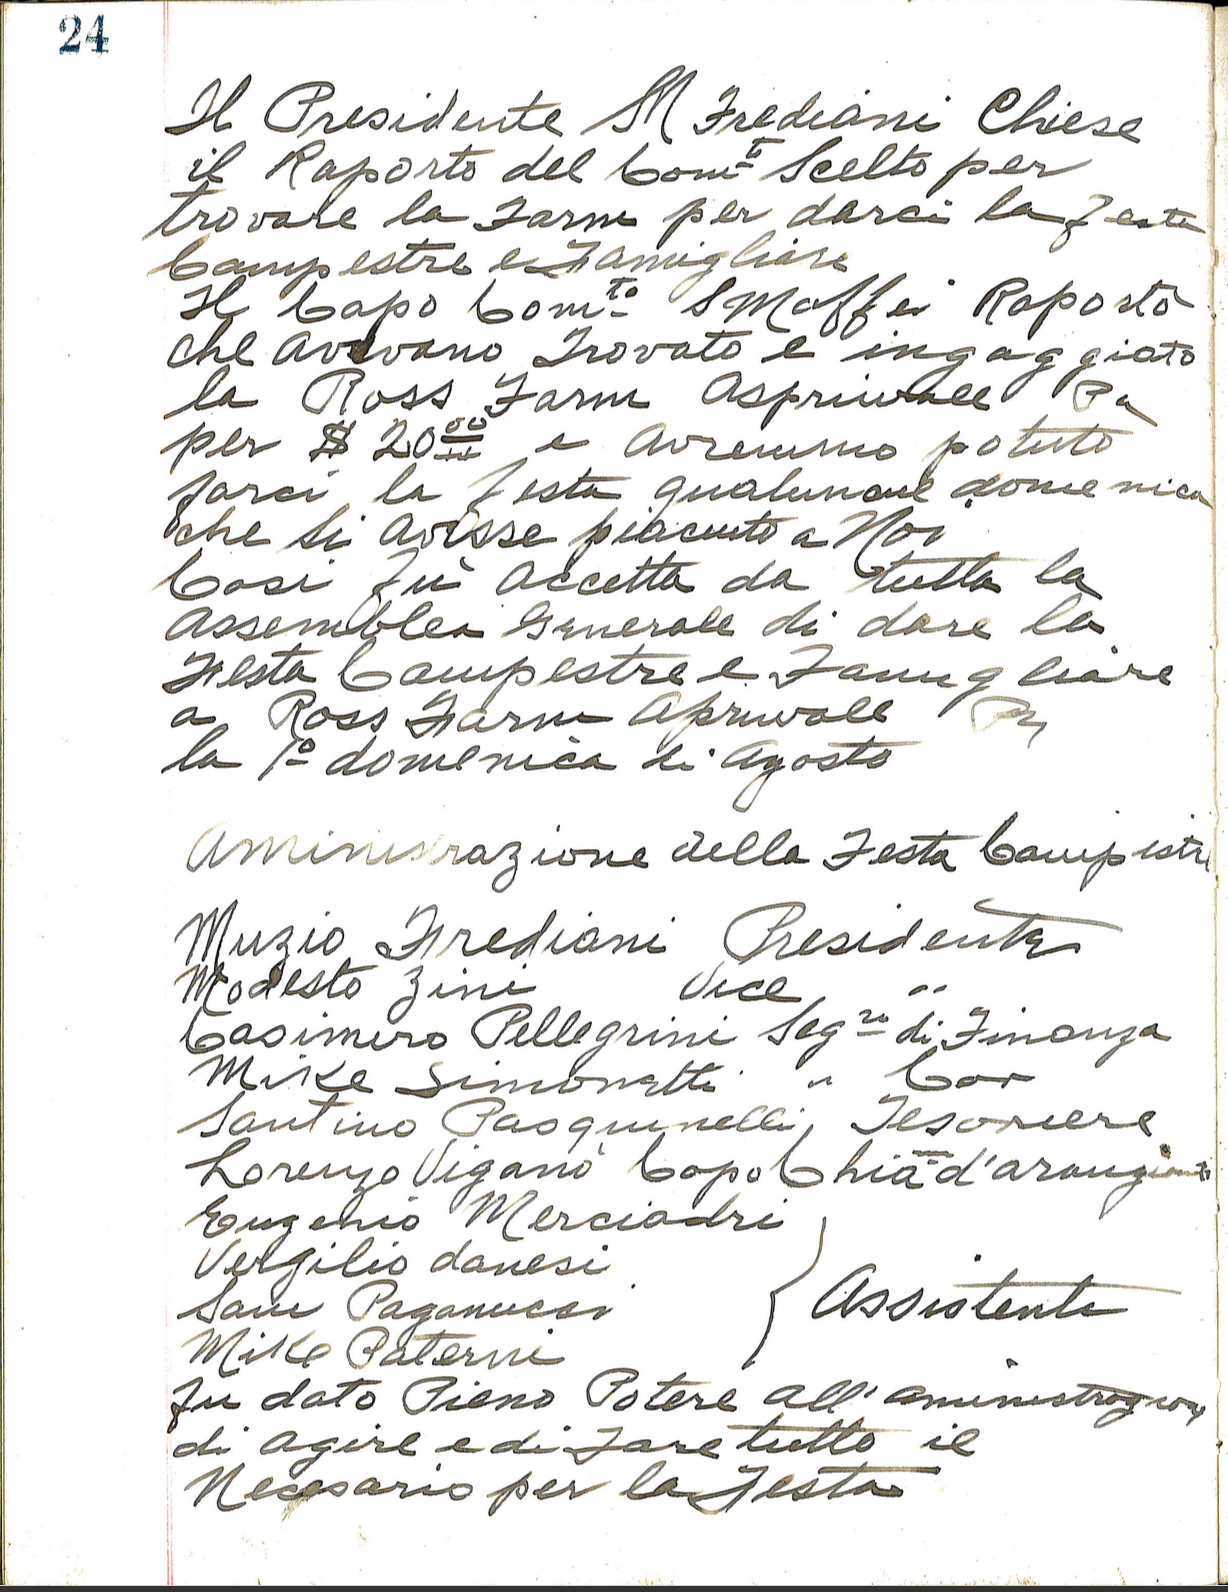 24
Il Presidente M Frediani Chiese
il Raporto del Com.to Scelto per
trovare la Farm per darci la festa
Campestre e Famigliare
Il Capo Com.to S Maffei Raportò
che avevano Trovato e ingaggiato
la Ross Farm Asprinvale Pa
per $ 20.00 e avremmo potuto
farci la festa qualuncue domenica
che si avesse piaciuto a Noi
Cosi fù accetta da tutta la
Assemblea Generale di dare la
Festa Campestre e Famigliare
a Ross Farm Aprinvale Pa
la 1º domenica di Agosto
Aministrazione della Festa Campestre
Muzio Frediani Presidente
Modesto Zini Vice "
Casimero Pellegrini Seg.ro di Finanza
Mike Simonetti " Cor
Santino Pasquinelli Tesoriere
Lorenzo Viganò Capo d'arangiamto
Eugenio Merciadri
Vergilio danesi
Sam Paganucci
Mike Paterni
Assistente
fu dato Pieno Potere all'aministrazione
di agire e di Fare tutto il
Necesario per la Festa